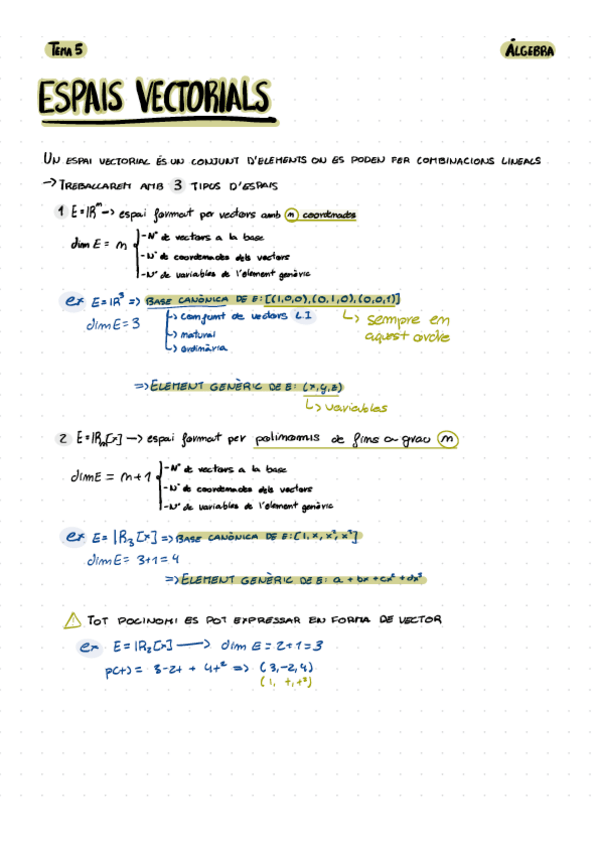 TEMA 5
ÀLGEBRA
ESPAIS VECTORIALS
UN ESPAI VECTORIAL ÉS UN CONJUNT D'ELEMENTS ON ES PODEN FER COMBINACIONS LINEALS
→ TREBALLAREM AMB 3 TIPUS D'ESPAIS
1 E=IRⁿ → espai format per vectors amb n coordenades
dim E = n
-Nº de vectors a la base
-Nº de coordenades dels vectors
-Nº de variables de l'element genèric
ex E=IR³ => BASE CANÒNICA DE E: [(1,0,0),(0,1,0),(0,0,1)]
dim E = 3
↳ conjunt de vectors L.I
↳ natural
↳ ordinària
↳ sempre en
aquest ordre
=> ELEMENT GENÈRIC DE E: (x,y,z)
↳ variables
2 E=IRₙ[x] → espai format per polinomis de fins a grau n
dim E = n+1
-Nº de vectors a la base
-Nº de coordenades dels vectors
-Nº de variables de l'element genèric
ex E= IR₃[x] => BASE CANÒNICA DE E: [1, x, x², x³]
dim E= 3+1 = 4
=> ELEMENT GENÈRIC DE E: a + bx + cx² + dx³
⚠ TOT POLINOMI ES POT EXPRESSAR EN FORMA DE VECTOR
ex E=IR₂[x] → dim E = 2+1 = 3
p(t) = 3-2t + 4t² => (3,-2,4)
(1, t, t²)